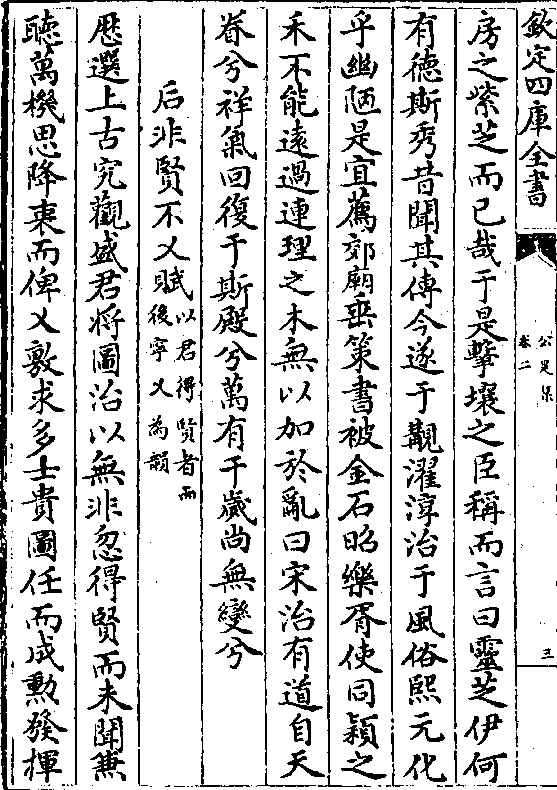 欽定四庫全書
公是集
卷二
三
房之紫芝而已哉于是擊壤之臣稱而言曰靈芝伊何
有徳斯秀昔聞其傳今遂于覯濯淳治于風俗熙元化
乎幽陋是宜薦郊廟垂策書被金石昭樂胥使同潁之
禾不能遠過連理之木無以加於亂曰宋治有道自天
眷兮祥氣回復于斯殿兮萬有千嵗尚無變兮
后非賢不乂賦以君得賢者而後寧乂為韻
歴選上古究觀盛君将圖治以無非忽得賢而未聞兼
聴萬機思降衷而俾乂敷求多士貴圖任而成勲發揮